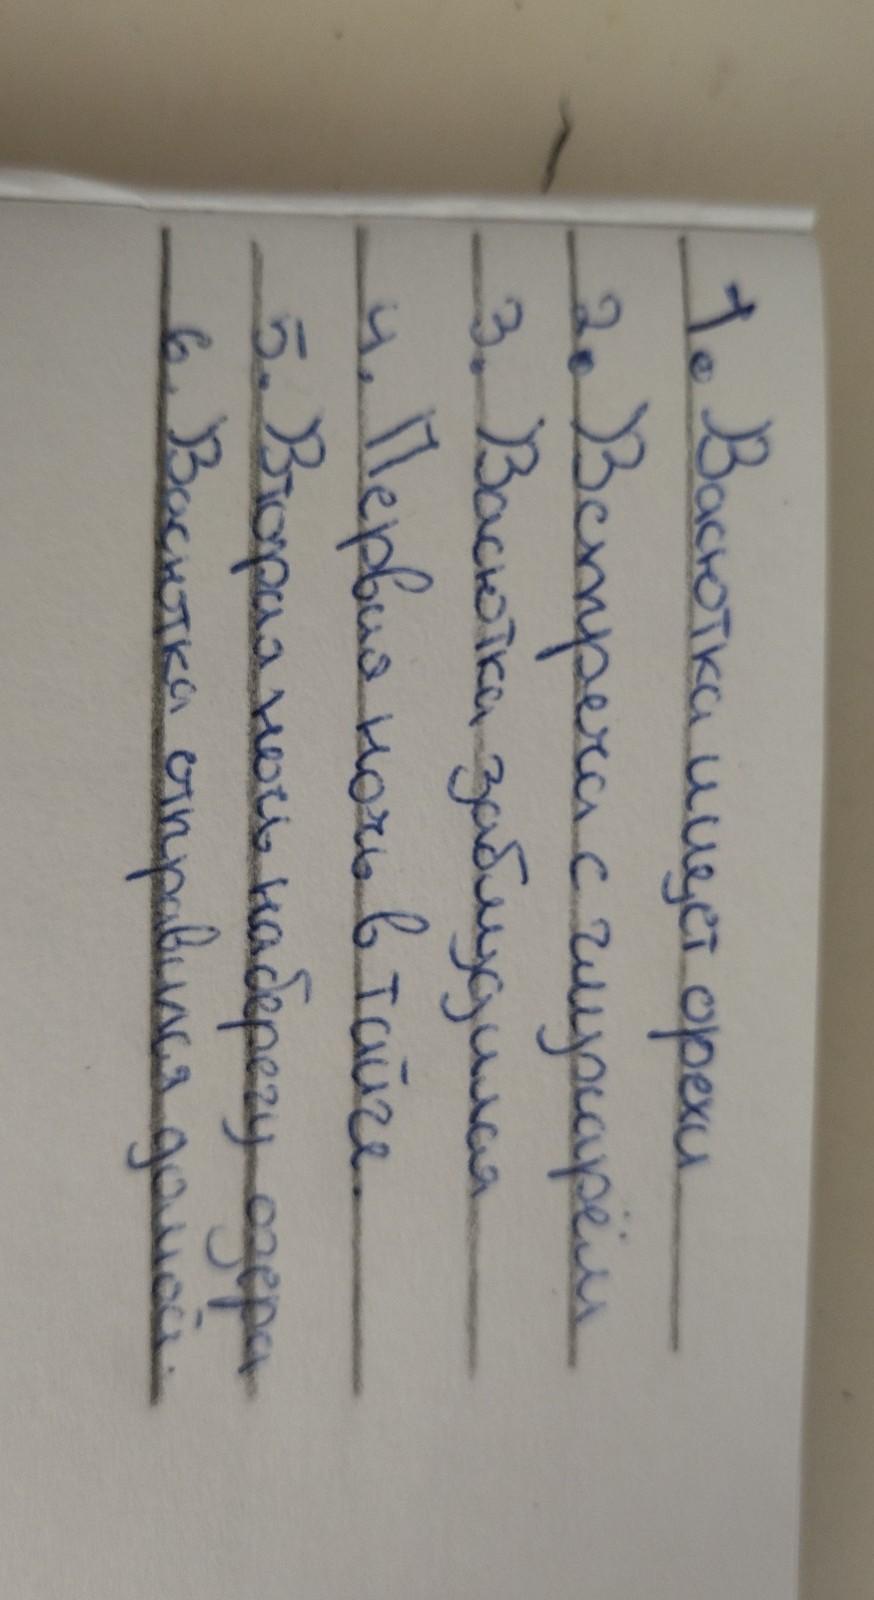 1. Васютка ищет орехи
2. Встреча с глухарём
3. Васютка заблудился
4. Первая ночь в тайге.
5. Вторая ночь на берегу озера
6. Васютка отправился домой.